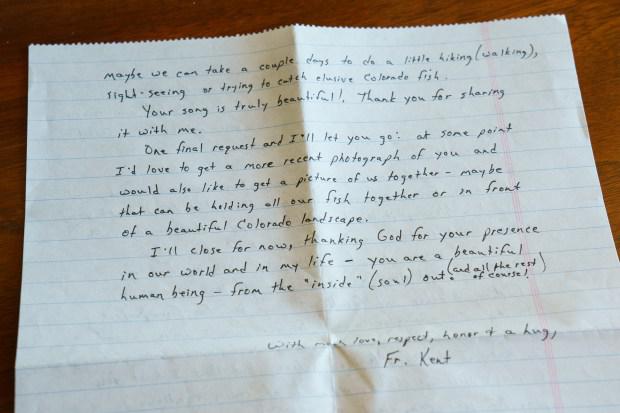 Maybe we can take a couple days to do a little hiking (walking),
sight-seeing or trying to catch elusive Colorado fish.
Your song is truly beautiful!, Thank you for sharing
it with me.
One final request and I'll let you go: at some point
I'd love to get a more recent photograph of you and
would also like to get a picture of us together - maybe
that can be holding all our fish together or in front
of a beautiful Colorado landscape.
I'll close for now, thanking God for your presence
in our world and in my life - you are a beautiful
human being - from the "inside" (soul) out! (and all the rest
of course!)
With much love, respect, honor + a hug,
Fr. Kent